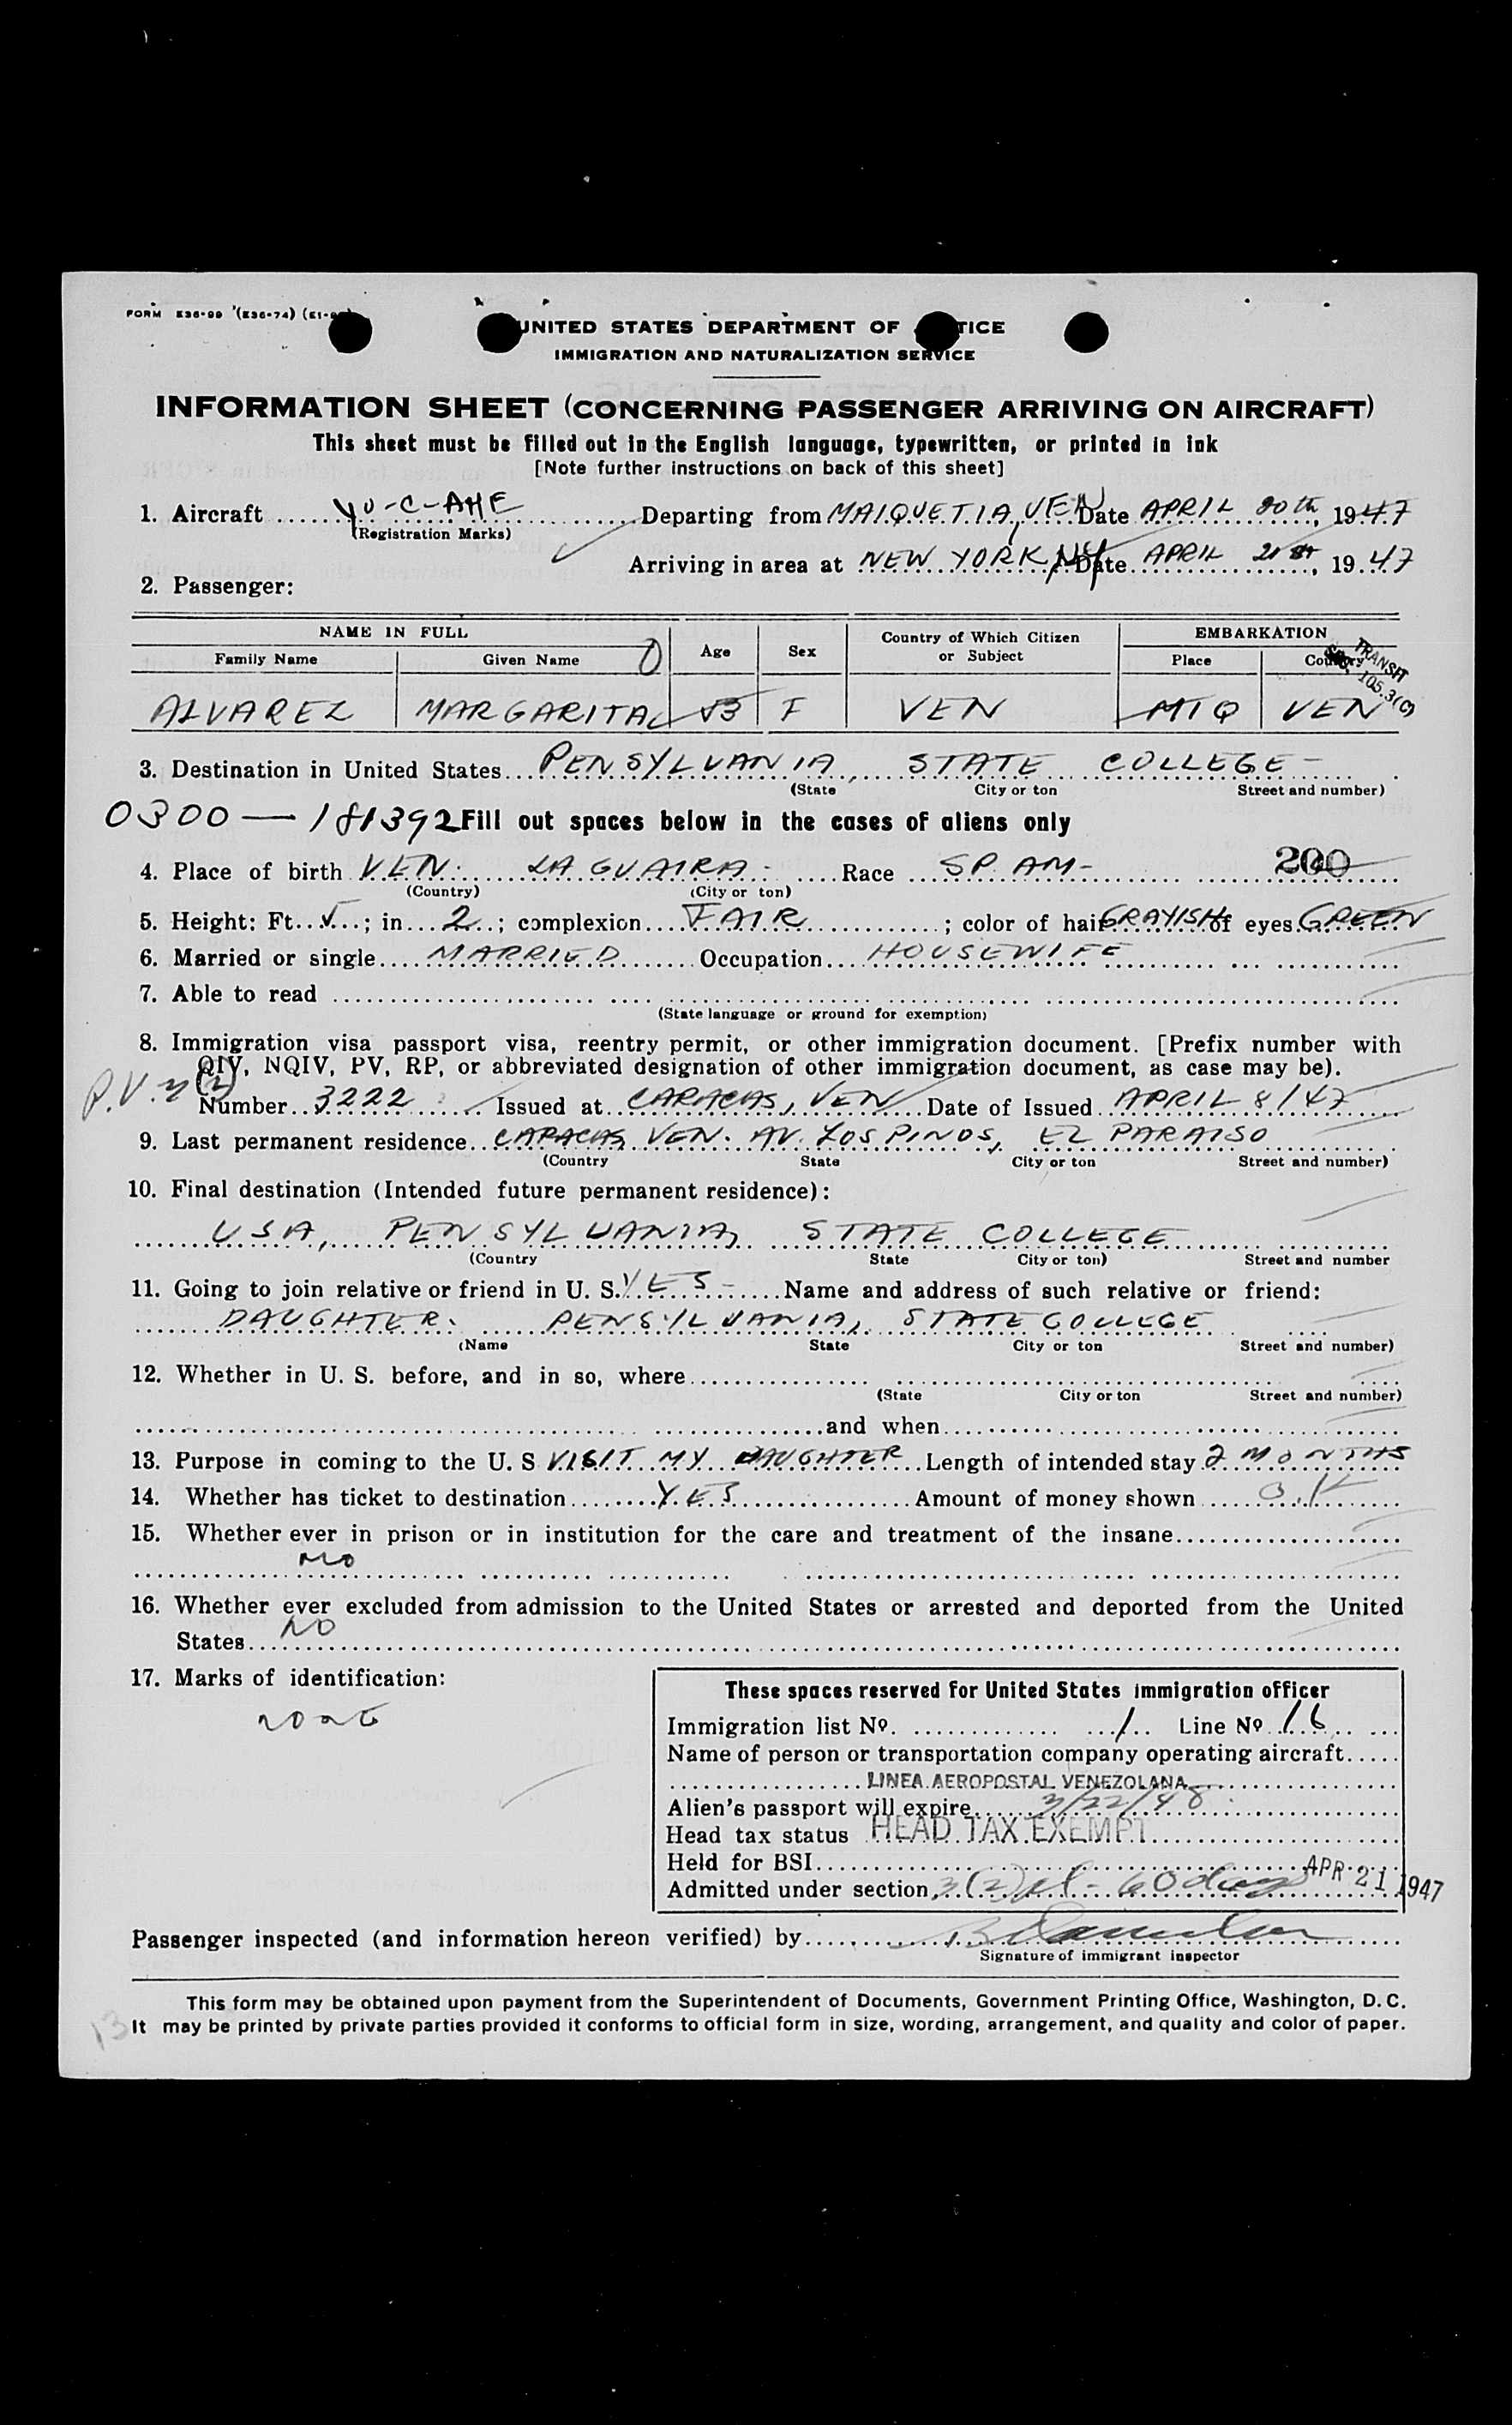 FORM E36-99 (E36-74) (E1-
UNITED STATES DEPARTMENT OF TICE
IMMIGRATION AND NATURALIZATION SERVICE
INFORMATION SHEET (CONCERNING PASSENGER ARRIVING ON AIRCRAFT)
This sheet must be filled out in the English language, typewritten, or printed in ink
[Note further instructions on back of this sheet]
1. Aircraft YU-C-AHE Departing from MAIQUETIA, VEN Date APRIL 20th, 1947
(Registration Marks)
Arriving in area at NEW YORK, NY Date APRIL 21st, 1947
2. Passenger:
NAME IN FULL Age Sex Country of Which Citizen or Subject EMBARKATION
Family Name Given Name Place Country
TRANSIT
105.3(c)
ALVAREZ MARGARITA 53 F VEN MIQ VEN
3. Destination in United States PENSYLVANIA, STATE COLLEGE -
(State City or ton Street and number)
0300 — 181392 Fill out spaces below in the cases of aliens only
4. Place of birth VEN. LA GUAIRA - Race SP. AM- 200
(Country) (City or ton)
5. Height: Ft. 5; in. 2; complexion FAIR; color of hair GRAYISH of eyes GREEN
6. Married or single MARRIED Occupation HOUSEWIFE
7. Able to read
(State language or ground for exemption)
8. Immigration visa passport visa, reentry permit, or other immigration document. [Prefix number with
QIV, NQIV, PV, RP, or abbreviated designation of other immigration document, as case may be).
P.V. 3(2) Number 3222 Issued at CARACAS, VEN Date of Issued APRIL 8/47
9. Last permanent residence CARACAS, VEN. AV. LOS PINOS, EL PARAISO
(Country State City or ton Street and number)
10. Final destination (Intended future permanent residence):
USA, PENSYLVANIA, STATE COLLEGE
(Country State City or ton) Street and number
11. Going to join relative or friend in U. S. YES - Name and address of such relative or friend:
DAUGHTER. PENSYLVANIA, STATE COLLEGE
(Name State City or ton Street and number)
12. Whether in U. S. before, and in so, where
(State City or ton Street and number)
and when
13. Purpose in coming to the U. S VISIT MY DAUGHTER Length of intended stay 2 MONTHS
14. Whether has ticket to destination YES Amount of money shown O.K
15. Whether ever in prison or in institution for the care and treatment of the insane
NO
16. Whether ever excluded from admission to the United States or arrested and deported from the United
States NO
17. Marks of identification:
NONE
These spaces reserved for United States immigration officer
Immigration list No. 1 Line No 16
Name of person or transportation company operating aircraft
LINEA AEROPOSTAL VENEZOLANA
Alien's passport will expire 3/22/48
Head tax status HEAD TAX EXEMPT
Held for BSI
Admitted under section 3(2) - 60 days APR 21 1947
Passenger inspected (and information hereon verified) by
Signature of immigrant inspector
This form may be obtained upon payment from the Superintendent of Documents, Government Printing Office, Washington, D. C.
It may be printed by private parties provided it conforms to official form in size, wording, arrangement, and quality and color of paper.
13